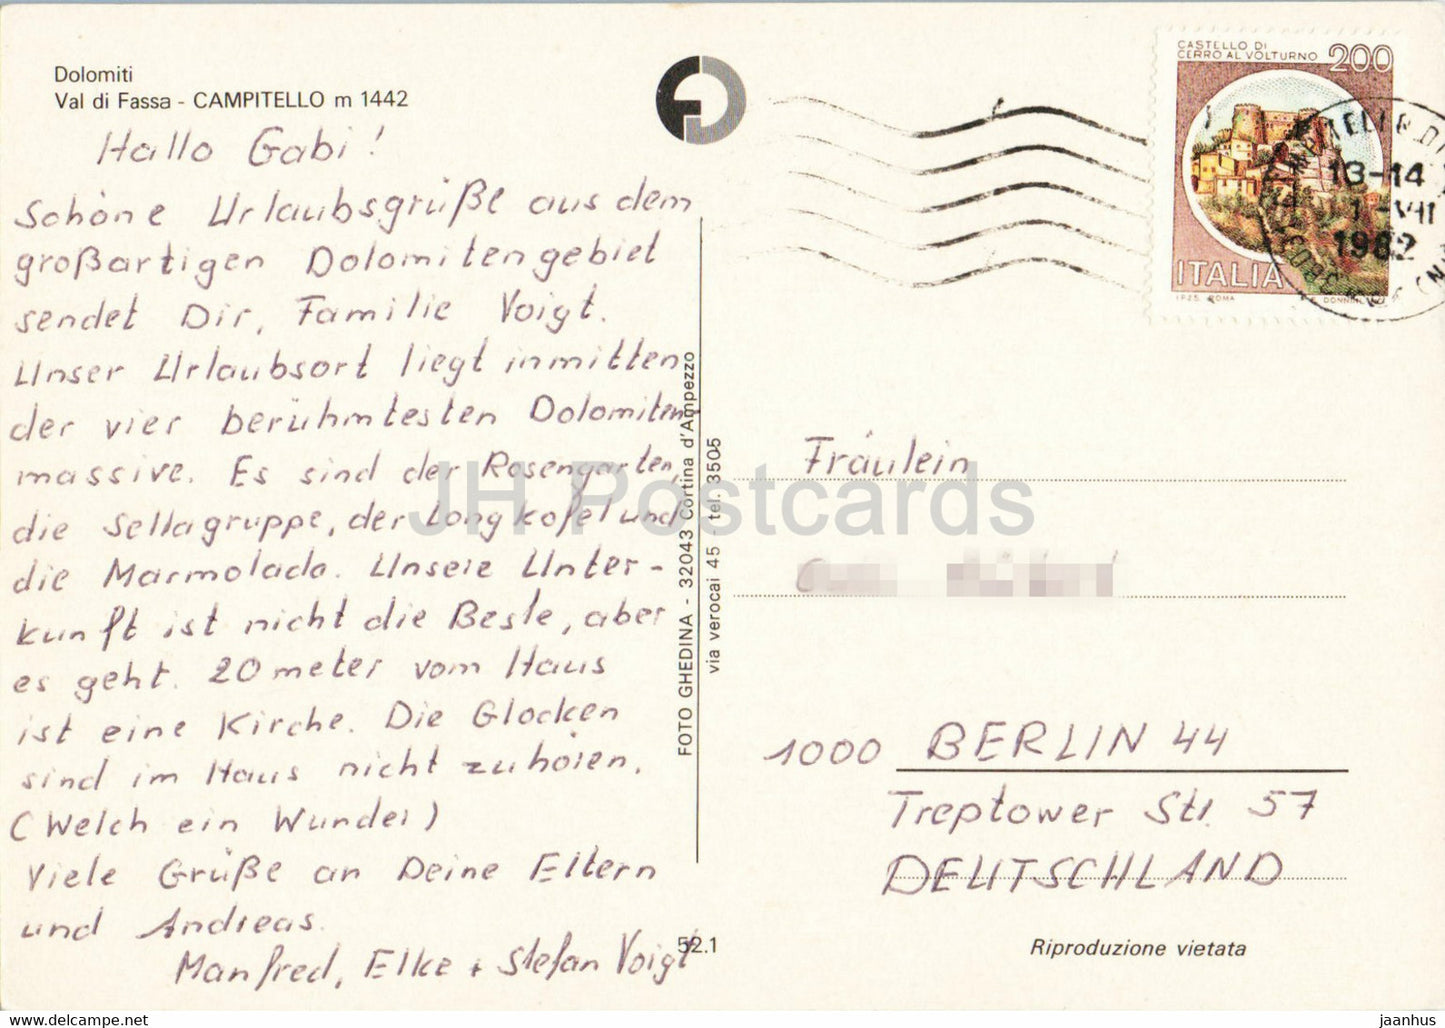 Dolomiti
Val di Fassa - CAMPITELLO m 1442
Hallo Gabi!
Schöne Urlaubsgrüße aus dem
großartigen Dolomitengebiet
sendet Dir, Familie Voigt.
Unser Urlaubsort liegt inmitten
der vier berühmtesten Dolomiten
massive. Es sind der Rosengarten,
die Sellagruppe, der Longkofel und
die Marmolada. Unsere Unter-
kunft ist nicht die Beste, aber
es geht. 20 meter vom Haus
ist eine Kirche. Die Glocken
sind im Haus nicht zuhören.
(Welch ein Wunder)
Viele Grüße an Deine Eltern
und Andreas.
Manfred, Elke + Stefan Voigt
FOTO GHEDINA - 32043 Cortina d'Ampezzo
via verocai 45 - tel. 3505
52.1
CASTELLO DI
CERRO AL VOLTURNO 200
ITALIA
I.P.Z.S. ROMA
13-14
1982
Fräulein
1000 BERLIN 44
Treptower Str. 57
DEUTSCHLAND
Riproduzione vietata
JH Postcards
www.delcampe.net
jaanhus